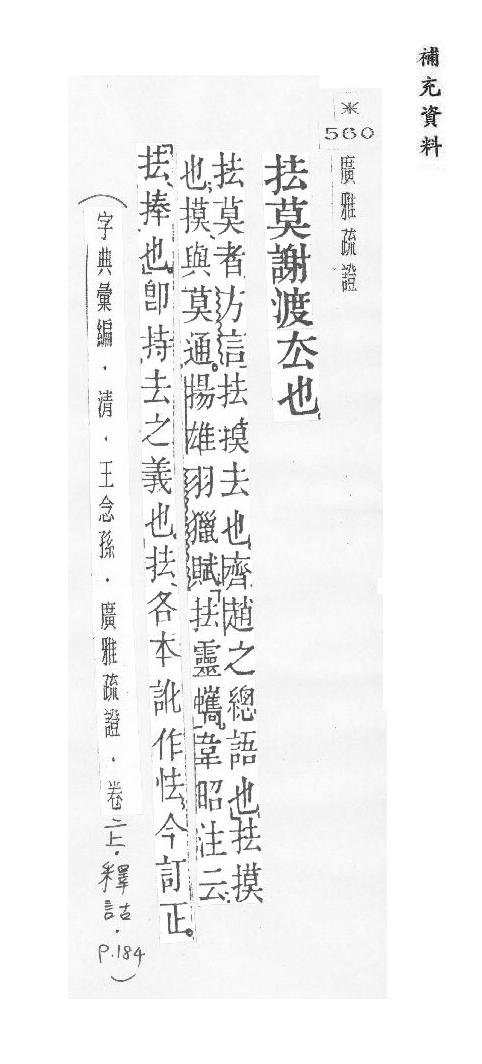 補充資料
※
560
廣雅疏證
抾莫謝渡厺也
抾莫者方言抾摸去也齊趙之總語也抾摸
也摸與莫通。揚雄羽獵賦抾靈蠵。韋昭注云
抾、捧也卽持去之義也抾、各本訛作怯今訂正。
(字典彙編．清．王念孫．廣雅疏證．卷二上．釋詁．P.184)